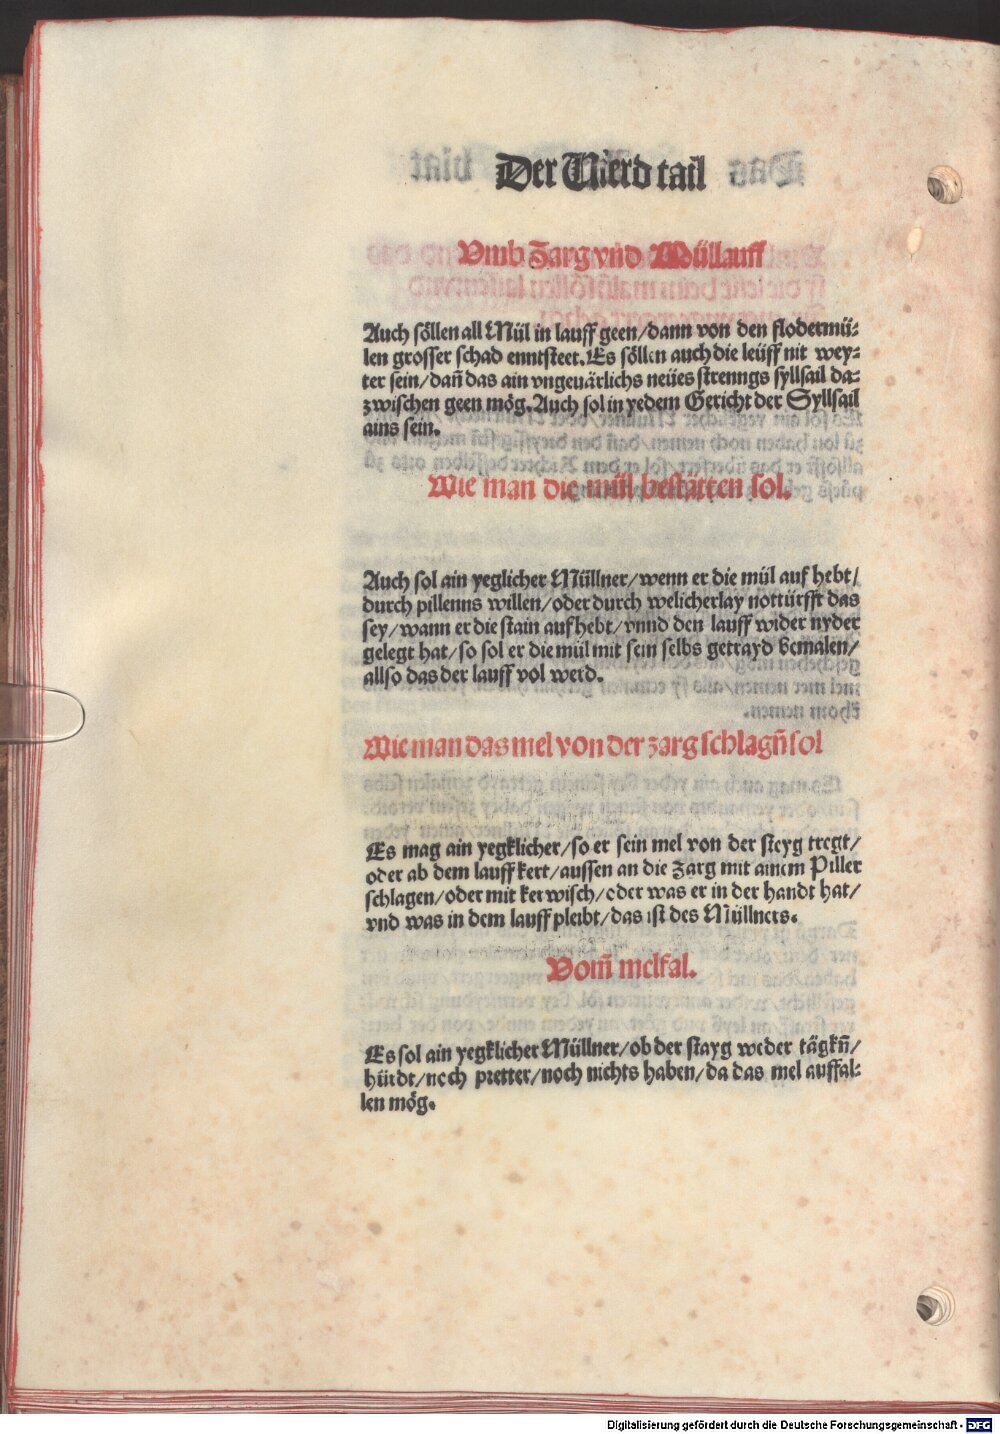 Der Vierd tail
Vmb Zarg vnd Müllauff
Auch söllen all Mül in lauff geen/dann von den flodermü⸗
len grosser schad enntsteet. Es söllen auch die leüff nit wey⸗
ter sein/dan̄ das ain vngeuärlichs neües strenngs syllsail da⸗
zwischen geen mög. Auch sol in yedem Gericht der Syllsail
ains sein.
Wie man die mül bestätten sol.
Auch sol ain yeglicher Müllner/wenn er die mül auf hebt/
durch pillenns willen/oder durch welicherlay notturfft das
sey/wann er die stain auf hebt/vnnd den lauff wider nyder
gelegt hat/so sol er die mül mit sein selbs getrayd bemalen/
allso das der lauff vol werd.
Wie man das mel von der zarg schlagn̄ sol
Es mag ain yegklicher/so er sein mel von der steyg tregt/
oder ab dem lauff kert/aussen an die Zarg mit ainem Piller
schlagen/oder mit kerwisch/oder was er in der handt hat/
vnd was in dem lauff pleibt/das ist des Müllners.
Vom̄ melkal.
Es sol ain yegklicher Müllner/ob der stayg weder tägkn̄/
hürdt/noch pretter/noch nichts haben/da das mel auffal⸗
len mög.
Digitalisierung gefördert durch die Deutsche Forschungsgemeinschaft - DFG